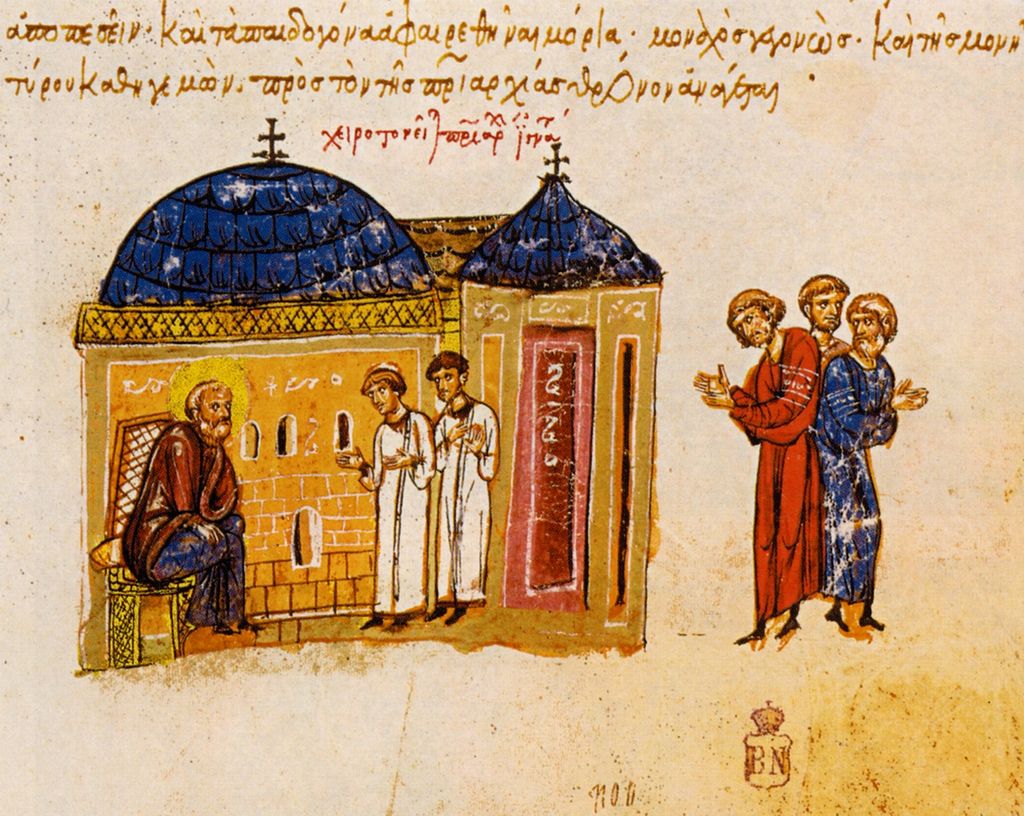 ἀποπεσεῖν· καὶ τὰ παιδογόνα ἀφαιρεθῆναι μόρια· μοναχὸς γεγονὼς· καὶ τῆς μονῆ
τύρου καθηγεμὼν, πρὸς τὸν τῆς πριαρχίας θρόνον ἀνάγεται
χειροτονεῖ
BN